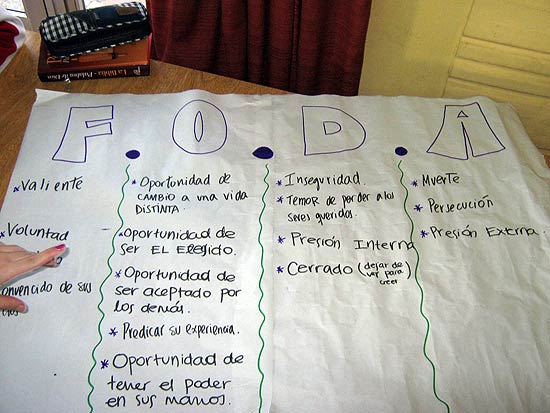 La Biblia - Palabra de Dios
F.O.D.A
* Valiente
* Voluntad
convencido de sus
* Oportunidad de
CAMBIO a una vida
DISTINTA.
* Oportunidad de
ser EL Elegido.
* Oportunidad de
ser aceptado por
los demás.
* Predicar su experiencia.
* Oportunidad de
tener el poder
en sus manos.
* Inseguridad.
* Temor de perder a los
seres queridos.
* Presión Interna
* Cerrado (dejar de
ver para
creer)
* Muerte
* Persecución
* Presión Externa.